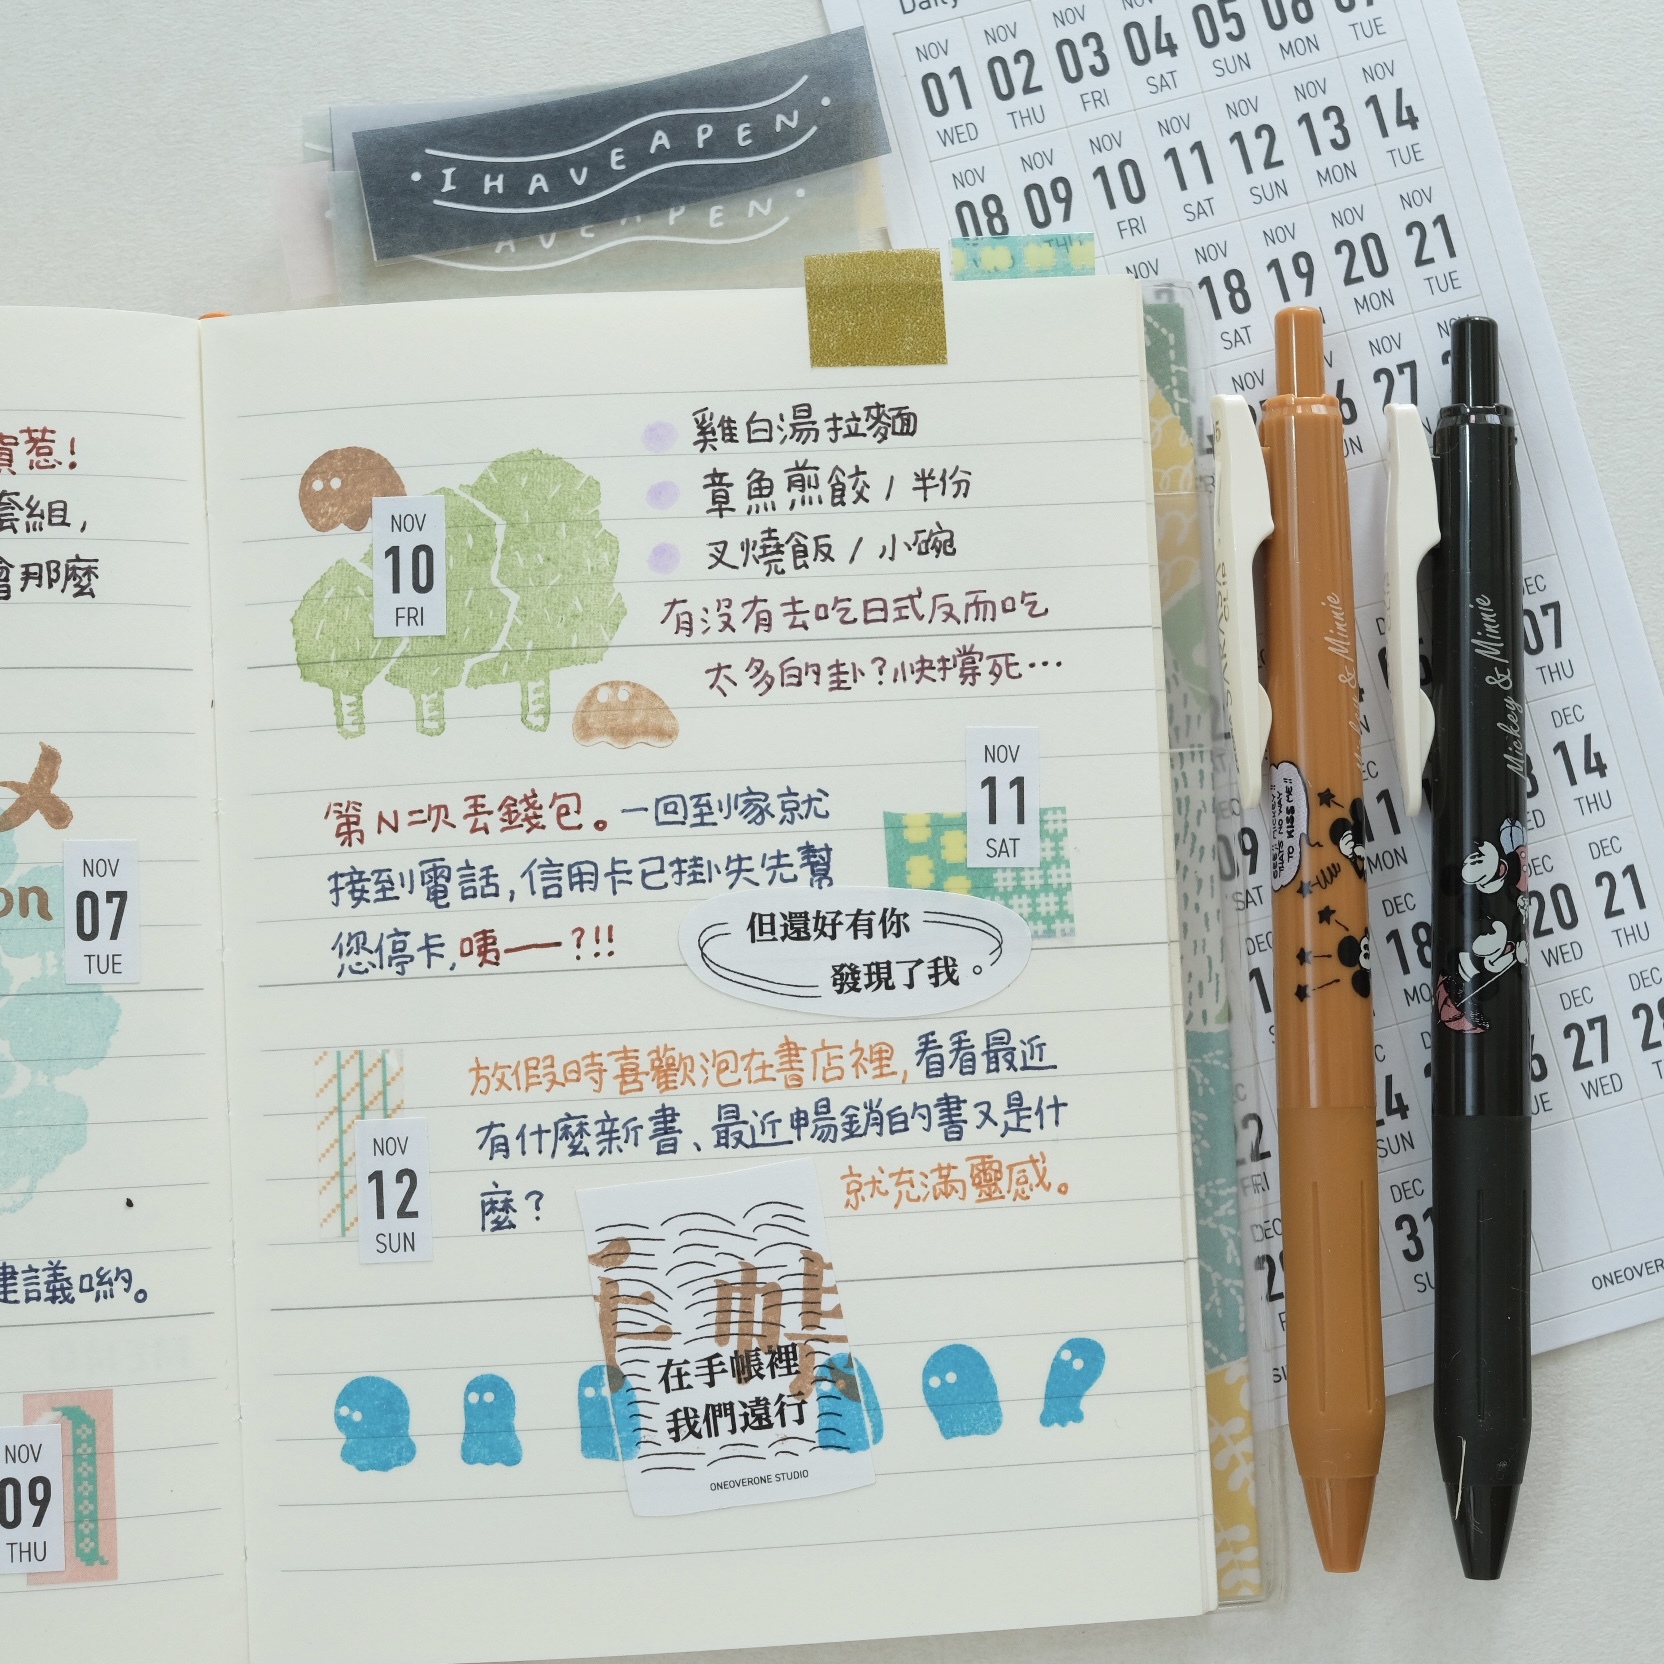 Daily
NOV 01 WED
NOV 02 THU
NOV 03 FRI
NOV 04 SAT
05 SUN
06 MON
07 TUE
NOV 08
NOV 09 THU
NOV 10 FRI
NOV 11 SAT
NOV 12 SUN
NOV 13 MON
NOV 14 TUE
NOV
NOV 18 SAT
NOV 19
NOV 20 MON
NOV 21 TUE
NOV
NOV 27
I HAVE A PEN
AVE A PEN
惹!
套組,
會那麼
NOV
07
TUE
on
建議喲。
NOV
09
THU
NOV
10
FRI
雞白湯拉麵
章魚煎餃 / 半份
叉燒飯 / 小碗
有沒有去吃日式反而吃
太多的卦?快撐死…
NOV
11
SAT
第N次丟錢包。一回到家就
接到電話,信用卡已掛失先幫
您停卡,咦——?!!
但還好有你
發現了我。
NOV
12
SUN
放假時喜歡泡在書店裡,看看最近
有什麼新書、最近暢銷的書又是什
麼?
就充滿靈感。
手帳
在手帳裡
我們遠行
ONEOVERONE STUDIO
Mickey & Minnie
TO KISS ME!!
Mickey & Minnie
07 THU
DEC 14 THU
DEC 20 WED
DEC 21 THU
DEC 18
DEC 27 WED
DEC
DEC 31
ONEOVER